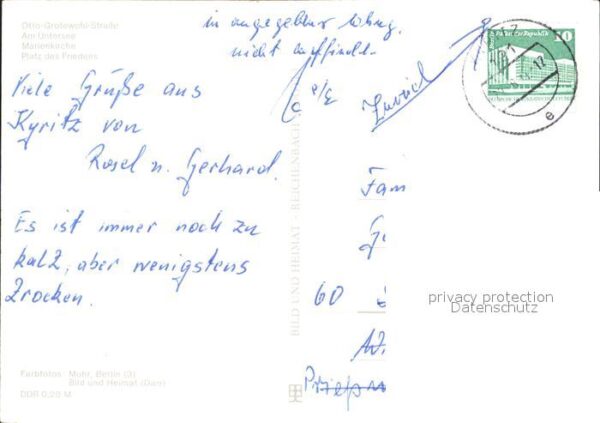 Otto-Grotewohl-Straße
Am Untersee
Marienkirche
Platz des Friedens
nicht auffindb.
Zurück
Viele Grüße aus
Kyritz von
Rosel u. Gerhard.
Es ist immer noch zu
kalt, aber wenigstens
Trocken.
BILD UND HEIMAT · REICHENBACH
Palast der Republik
10
e
Fam
60
privacy protection
Datenschutz
Farbfotos: Mohr, Berlin (3)
Bild und Heimat (Dam)
DDR 0,20 M